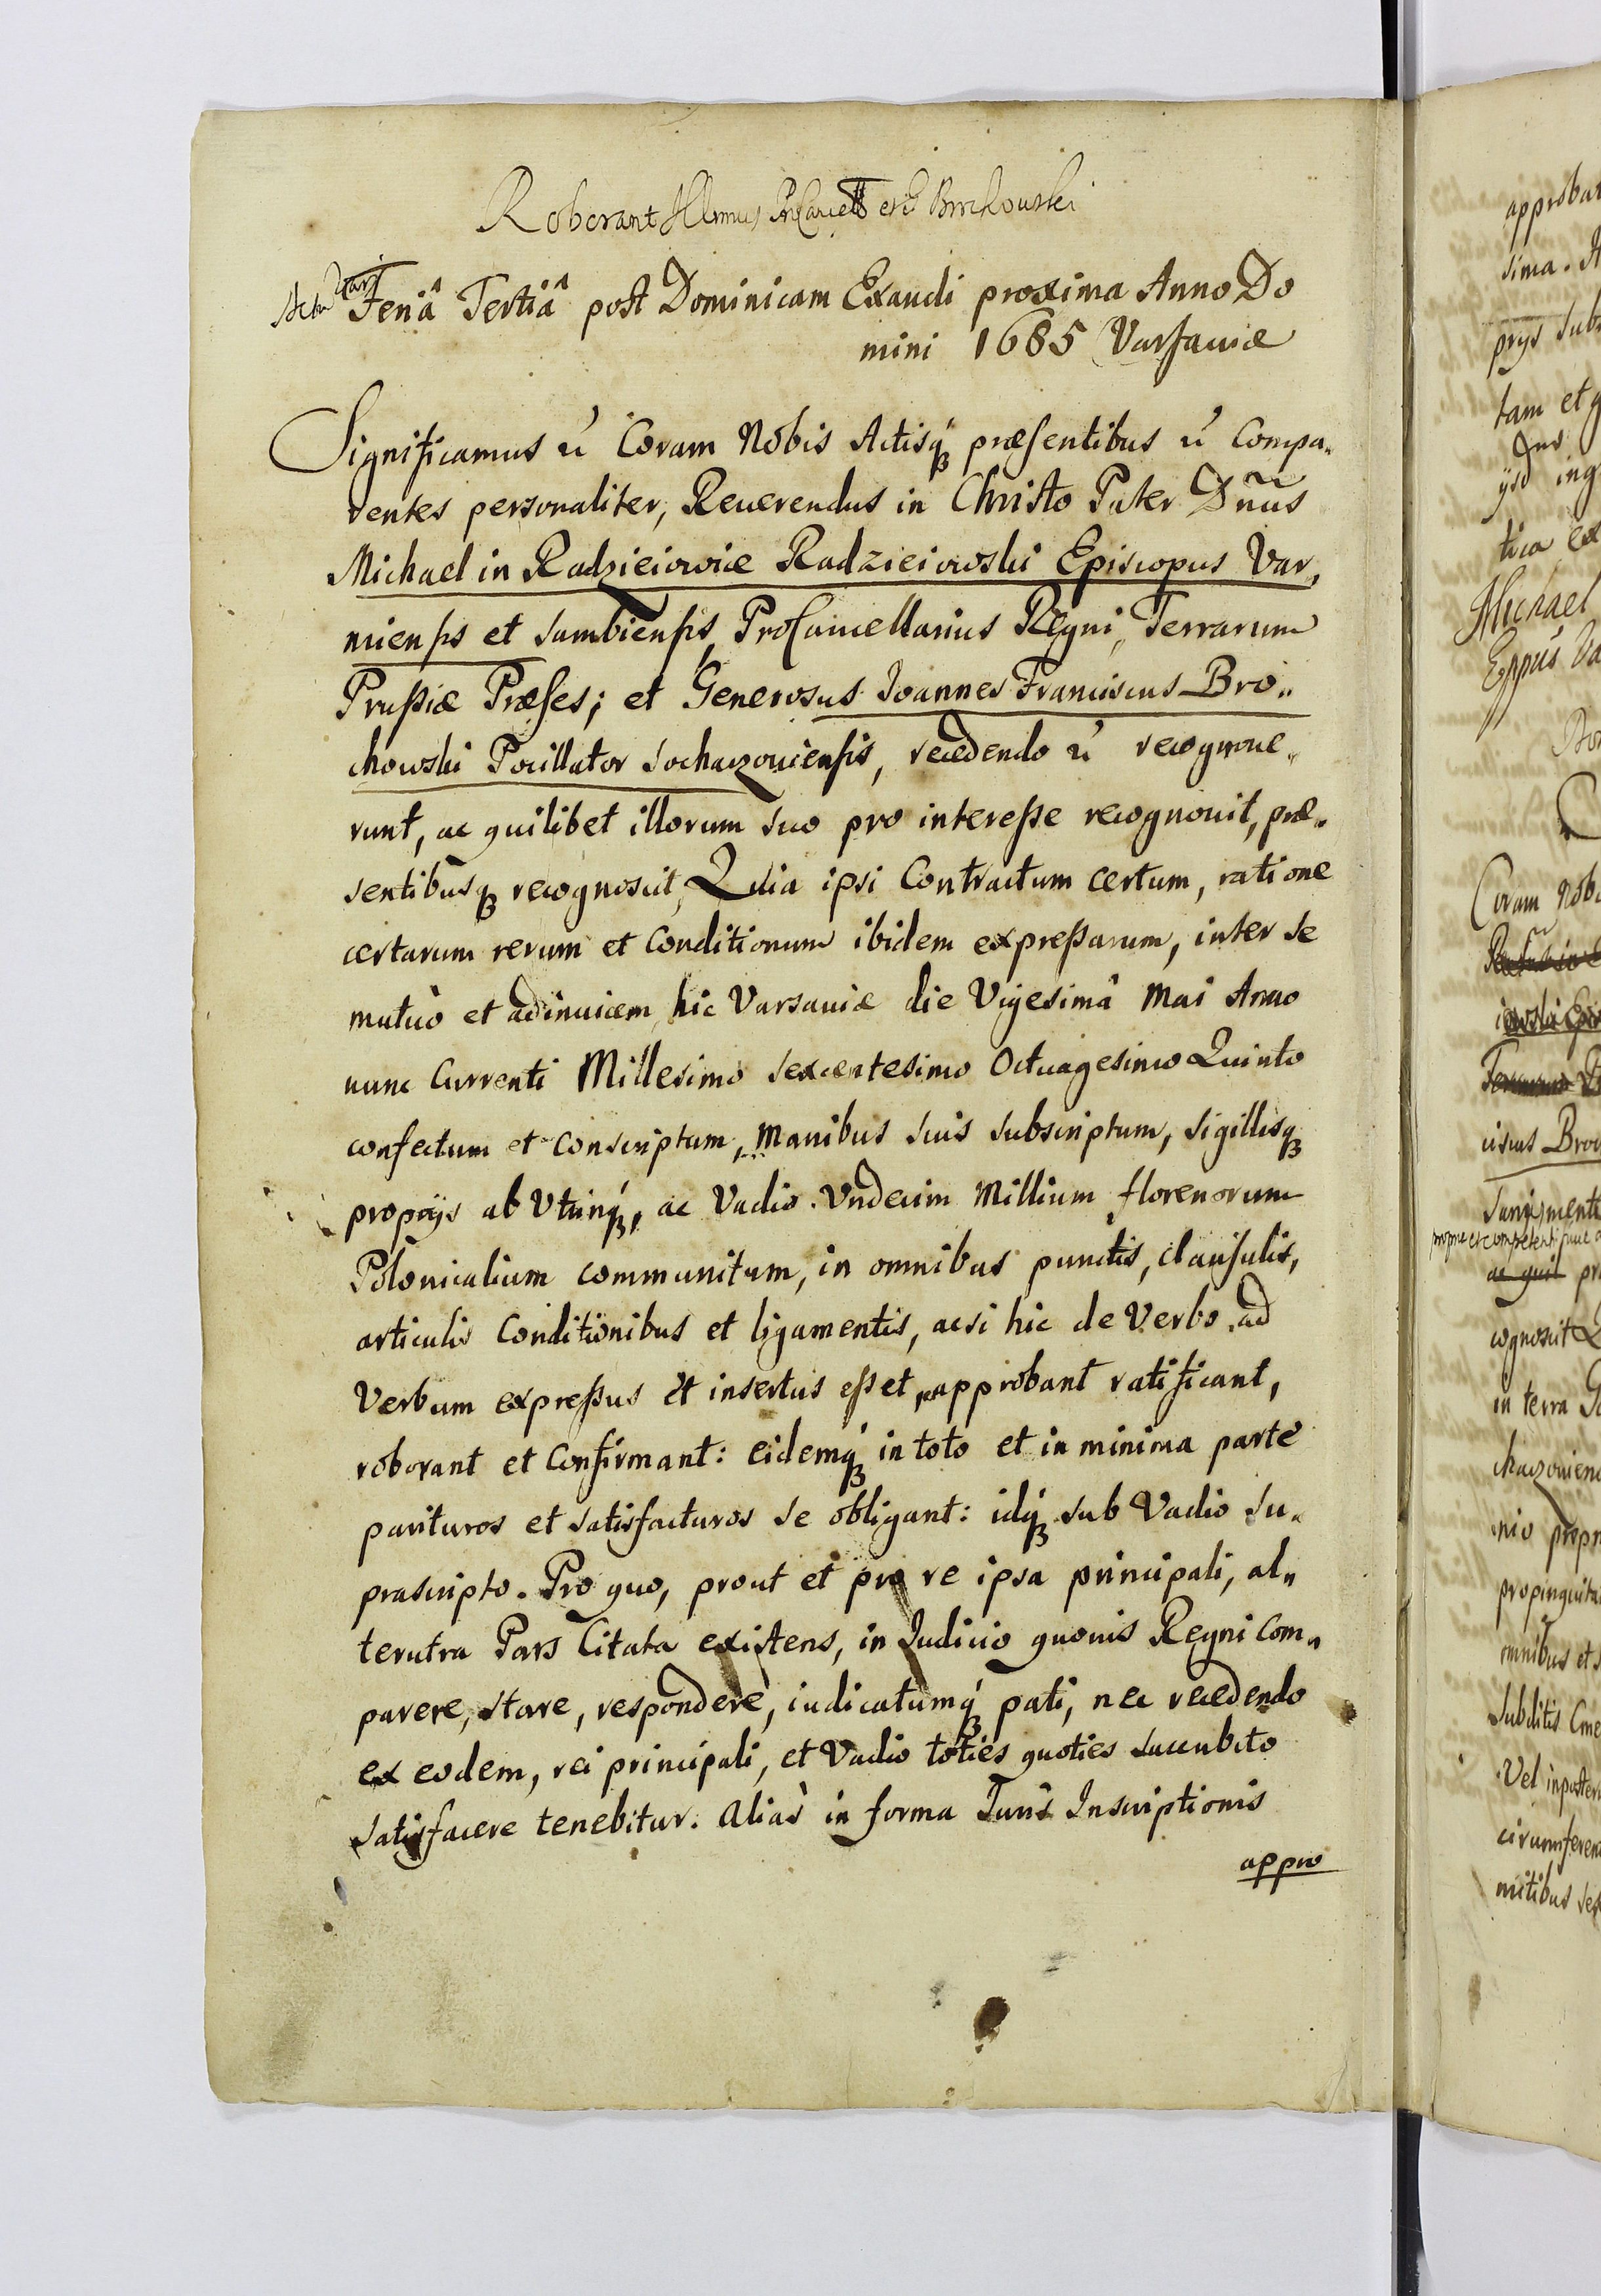 Roborant Illmus ProCancell et G Brochowski
Actu Var
Feriâ Tertiâ post Dominicam Exaudi proxima Anno Do
mini 1685 Varsauiæ
Significamus ŭ Coram Nobis Actisq́ præsentibus ŭ Compa„
rentes personaliter, Reuerendus in Christo Pater Dn̄us
Michael in Radzieiowice Radzieiowski Episcopus Var„
miensis et Sambiensis, ProCancellarius Regni, Terrarum
Prussiæ Præses; et Generosus Ioannes Franciscus Bro„
chowski Pocillator Sochaczouiensis, recedendo ŭ recognoue„
runt, ac quilibet illorum suo pro interesse recognouit, præ„
sentibusq recognoscit, Quia ipsi Contractum certum, ratione
certarum rerum et Conditionum ibidem expressarum, inter se
mutuò et adinuicem hic Varsauiæ die Vigesimâ Mai Anno
nunc Currenti Millesimo sexcentesimo Octuagesimo Quinto
confectum et Conscriptum, Manibus suis subscriptum, sigillisq
proprijs ab Utrinq́, ac Vadio Vndecim Millium florenorum
Polonicalium communitum, in omnibus punctis, clausulis,
articulis Conditionibus et ligamentis, acsi hic de Verbo ad
Verbum expressus et insertus esset, approbant ratificant,
roborant et Confirmant: eidemq́ in toto et in minima parte
parituros et satisfacturos se obligant: idq́ sub Vadio su„
prascripto. Pro quo, prout et pro re ipsa principali, al„
terutra Pars Citata existens, in Iudicio quouis Regni Com„
parere, stare, respondere, iudicatumq́ pati, nec recedendo
ex eodem, rei principali, et Vadio toties quoties succubito
satisfacere tenebitur. Aliàs in forma Iuris Inscriptionis
appro
approbat
sima.
prijs sub
tam et
Michael
Eppus Va
Coram Nobi
ciscus Broc
proprie et competenti
ac quil
cognoscit
in terra
nio propri
propinquita
omnibus et
subditis Cme
Vel inposter
circumferen
mitibus